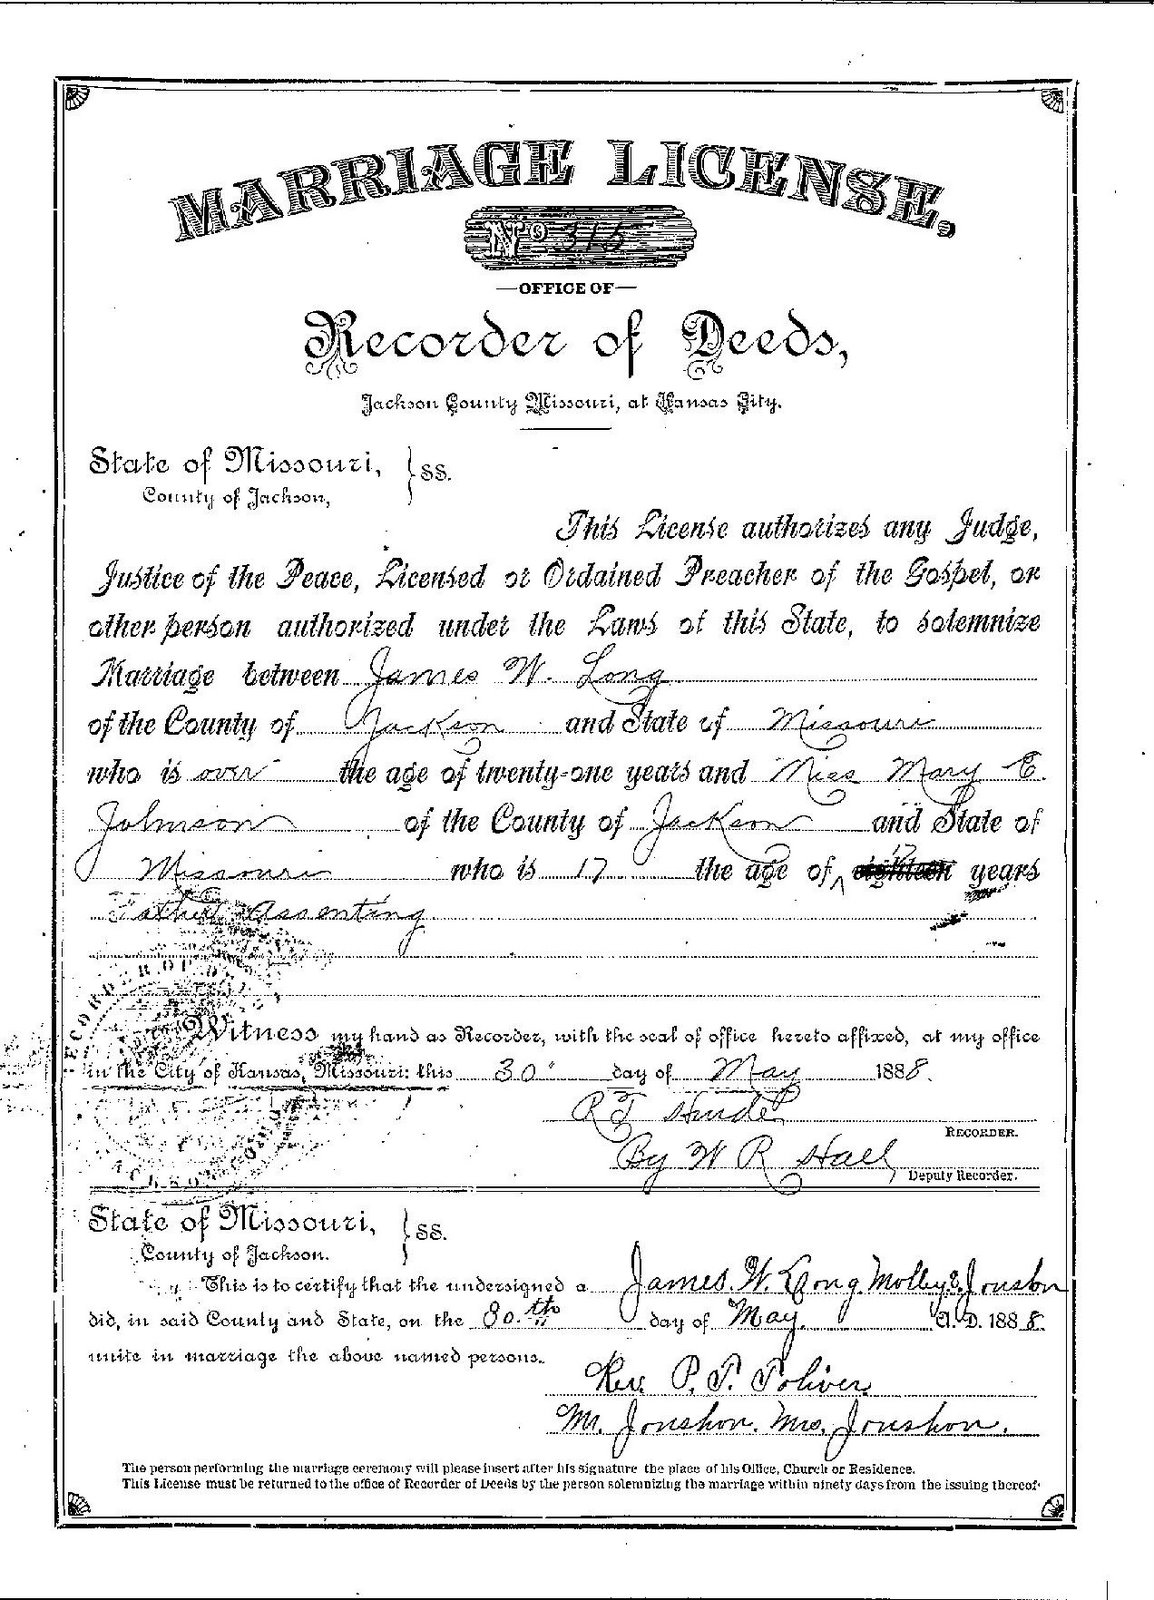 MARRIAGE LICENSE.
No 315
—OFFICE OF—
Recorder of Deeds,
Jackson County Missouri, at Kansas City.
State of Missouri, } SS.
County of Jackson,
This License authorizes any Judge,
Justice of the Peace, Licensed or Ordained Preacher of the Gospel, or
other person authorized under the Laws of this State, to solemnize
Marriage between James W. Long
of the County of Jackson and State of Missouri
who is over the age of twenty-one years and Miss Mary E.
Johnson of the County of Jackson and State of
17
Missouri who is 17 the age of ^ eighteen years
Father Assenting
RECORDER OF
Witness my hand as Recorder, with the seal of office hereto affixed, at my office
in the City of Kansas, Missouri: this 30" day of May 1888.
R T Hinde
RECORDER.
By W R Hall
Deputy Recorder.
State of Missouri, } SS.
County of Jackson.
This is to certify that the undersigned a James. W. Long. Molly E Jonshon
did, in said County and State, on the 30.th day of May. A. D. 1888.
unite in marriage the above named persons.
Rev. P. T.
Mr. Jonshon. Mrs. Jonshon.
The person performing the marriage ceremony will please insert after his signature the place of his Office, Church or Residence.
This License must be returned to the office of Recorder of Deeds by the person solemnizing the marriage within ninety days from the issuing thereof.